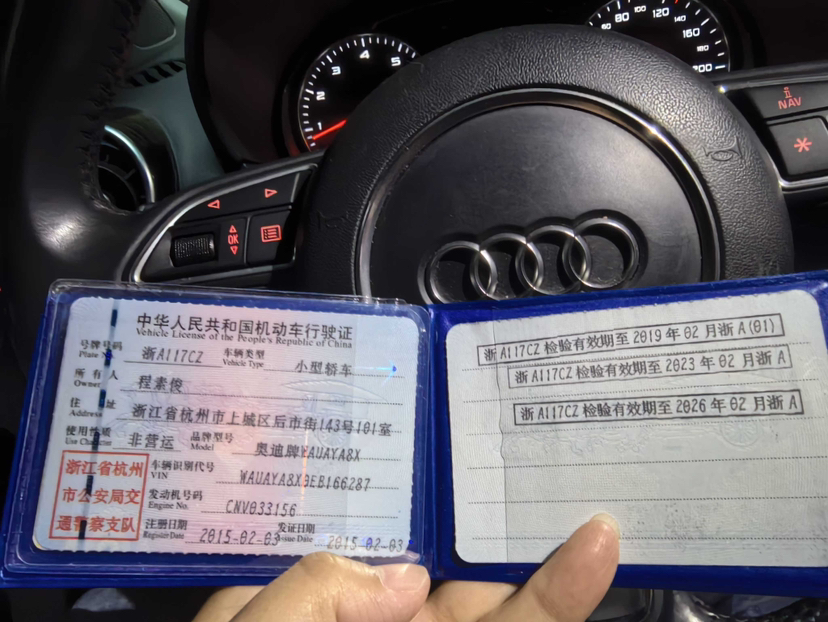 1 2 3 4 5
60 80 100 120 140 160 180 200
NAV
OK
中华人民共和国机动车行驶证
Vehicle License of the People's Republic of China
号牌号码 浙A117CZ 车辆类型 小型轿车
Plate Vehicle Type
所有人 程素俊
Owner
住址 浙江省杭州市上城区后市街143号101室
Address
使用性质 非营运 品牌型号 奥迪牌WAUAYA8X
Use Character Model
浙江省杭州
市公安局交
通警察支队
车辆识别代号 WAUAYA8X9EB166287
VIN
发动机号码 CNV033156
Engine No.
注册日期 2015-02-03 发证日期 2015-02-03
Register Date Issue Date
浙A117CZ检验有效期至2019年02月浙A(01)
浙A117CZ检验有效期至2023年02月浙A
浙A117CZ检验有效期至2026年02月浙A